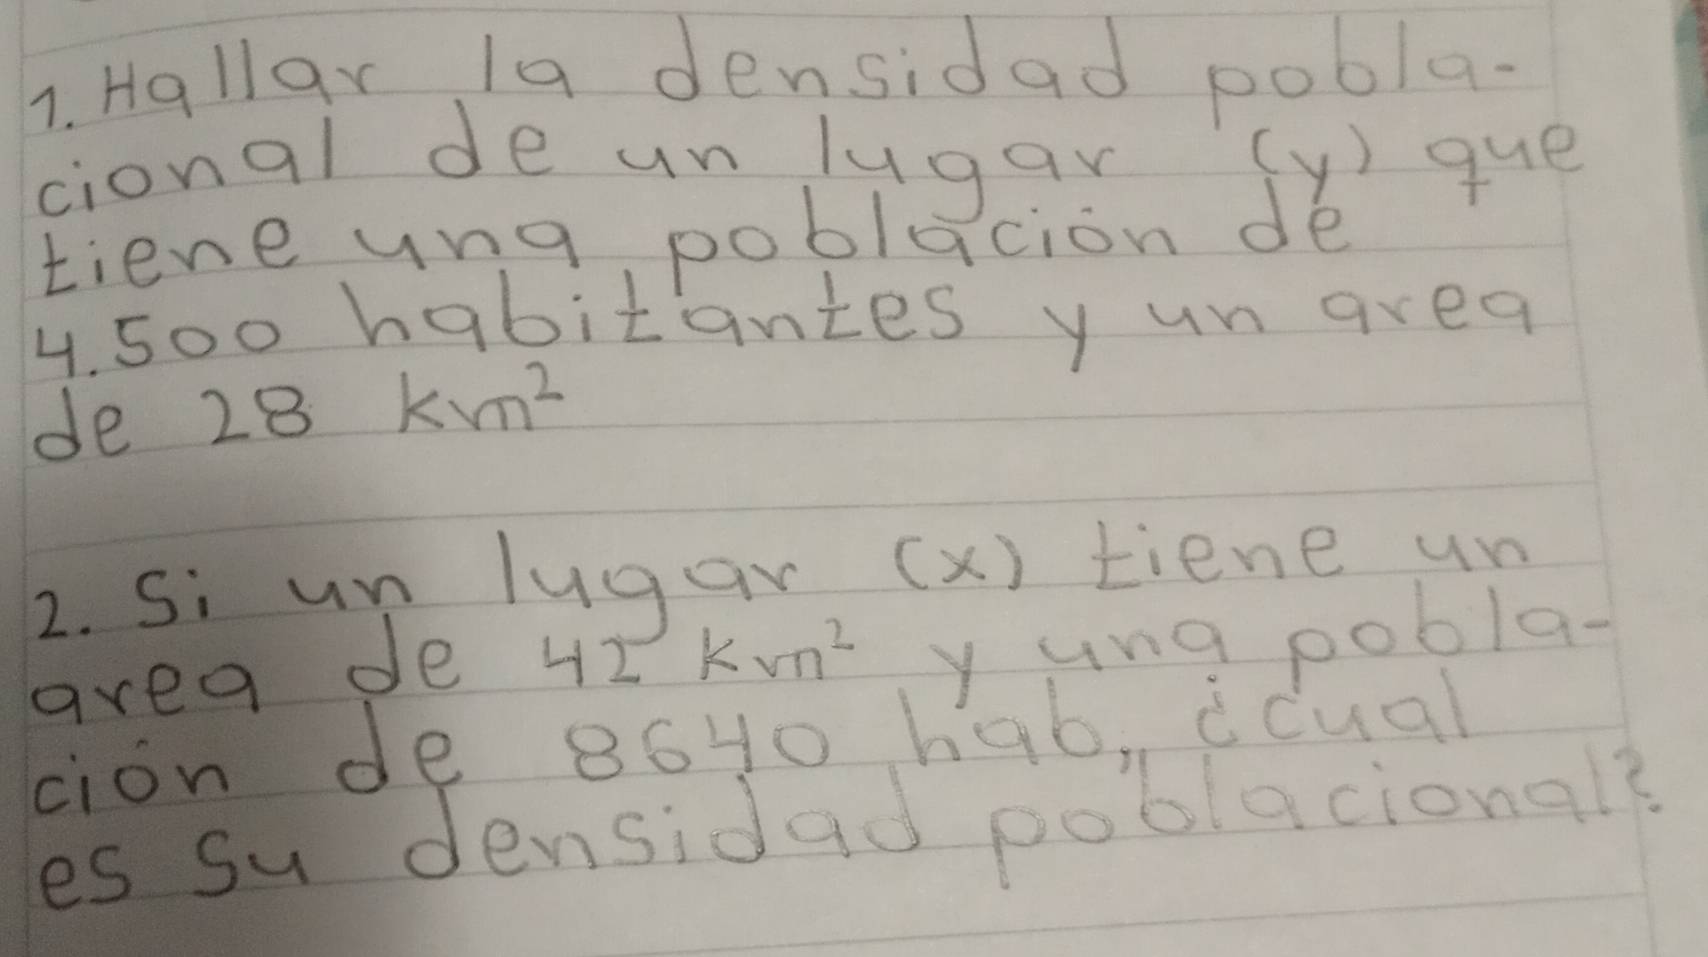 1. Hallar la densidad pobla-
cional de un lugar (y) que
tiene una población de
4.500 habitantes y un area
de 28 km²
2. Si un lugar (x) tiene un
area de 42 km² y una pobla-
ción de 8640 hab,, ¿cual
es su densidad poblacional?